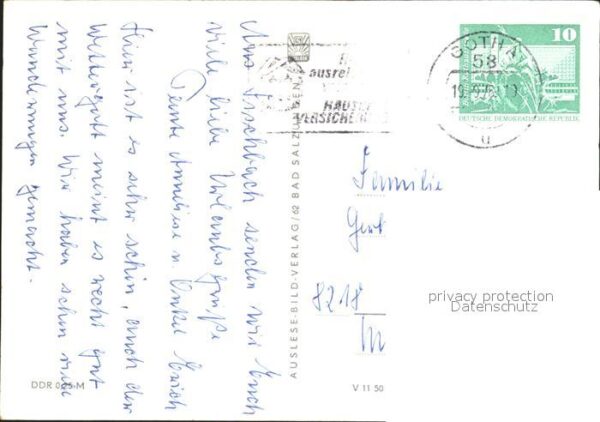 Aus Fischbach senden wir Euch
viele liebe Urlaubsgrüße
Tante Anneliese u. Onkel Erich
Hier ist es sehr schön, auch der
Wettergott meint es recht gut
mit uns. Wir haben schon viele
Wanderungen gemacht.
DDR 0,25 M
AUSLESE-BILD-VERLAG/62 BAD SALZUNGEN
V 11 50
HAUS
VERSICHER
GOTHA
58
19.
u
10
DEUTSCHE DEMOKRATISCHE REPUBLIK
Familie
Gert
8218
privacy protection
Datenschutz